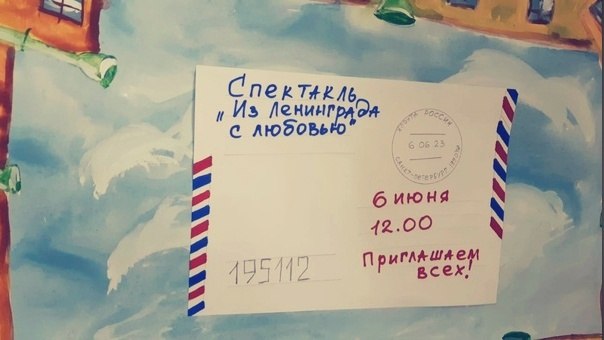 Спектакль
„Из Ленинграда
с любовью"
ПОЧТА РОССИИ
6 06 23
САНКТ-ПЕТЕРБУРГ
6 июня
12.00
Приглашаем
всех!
195112